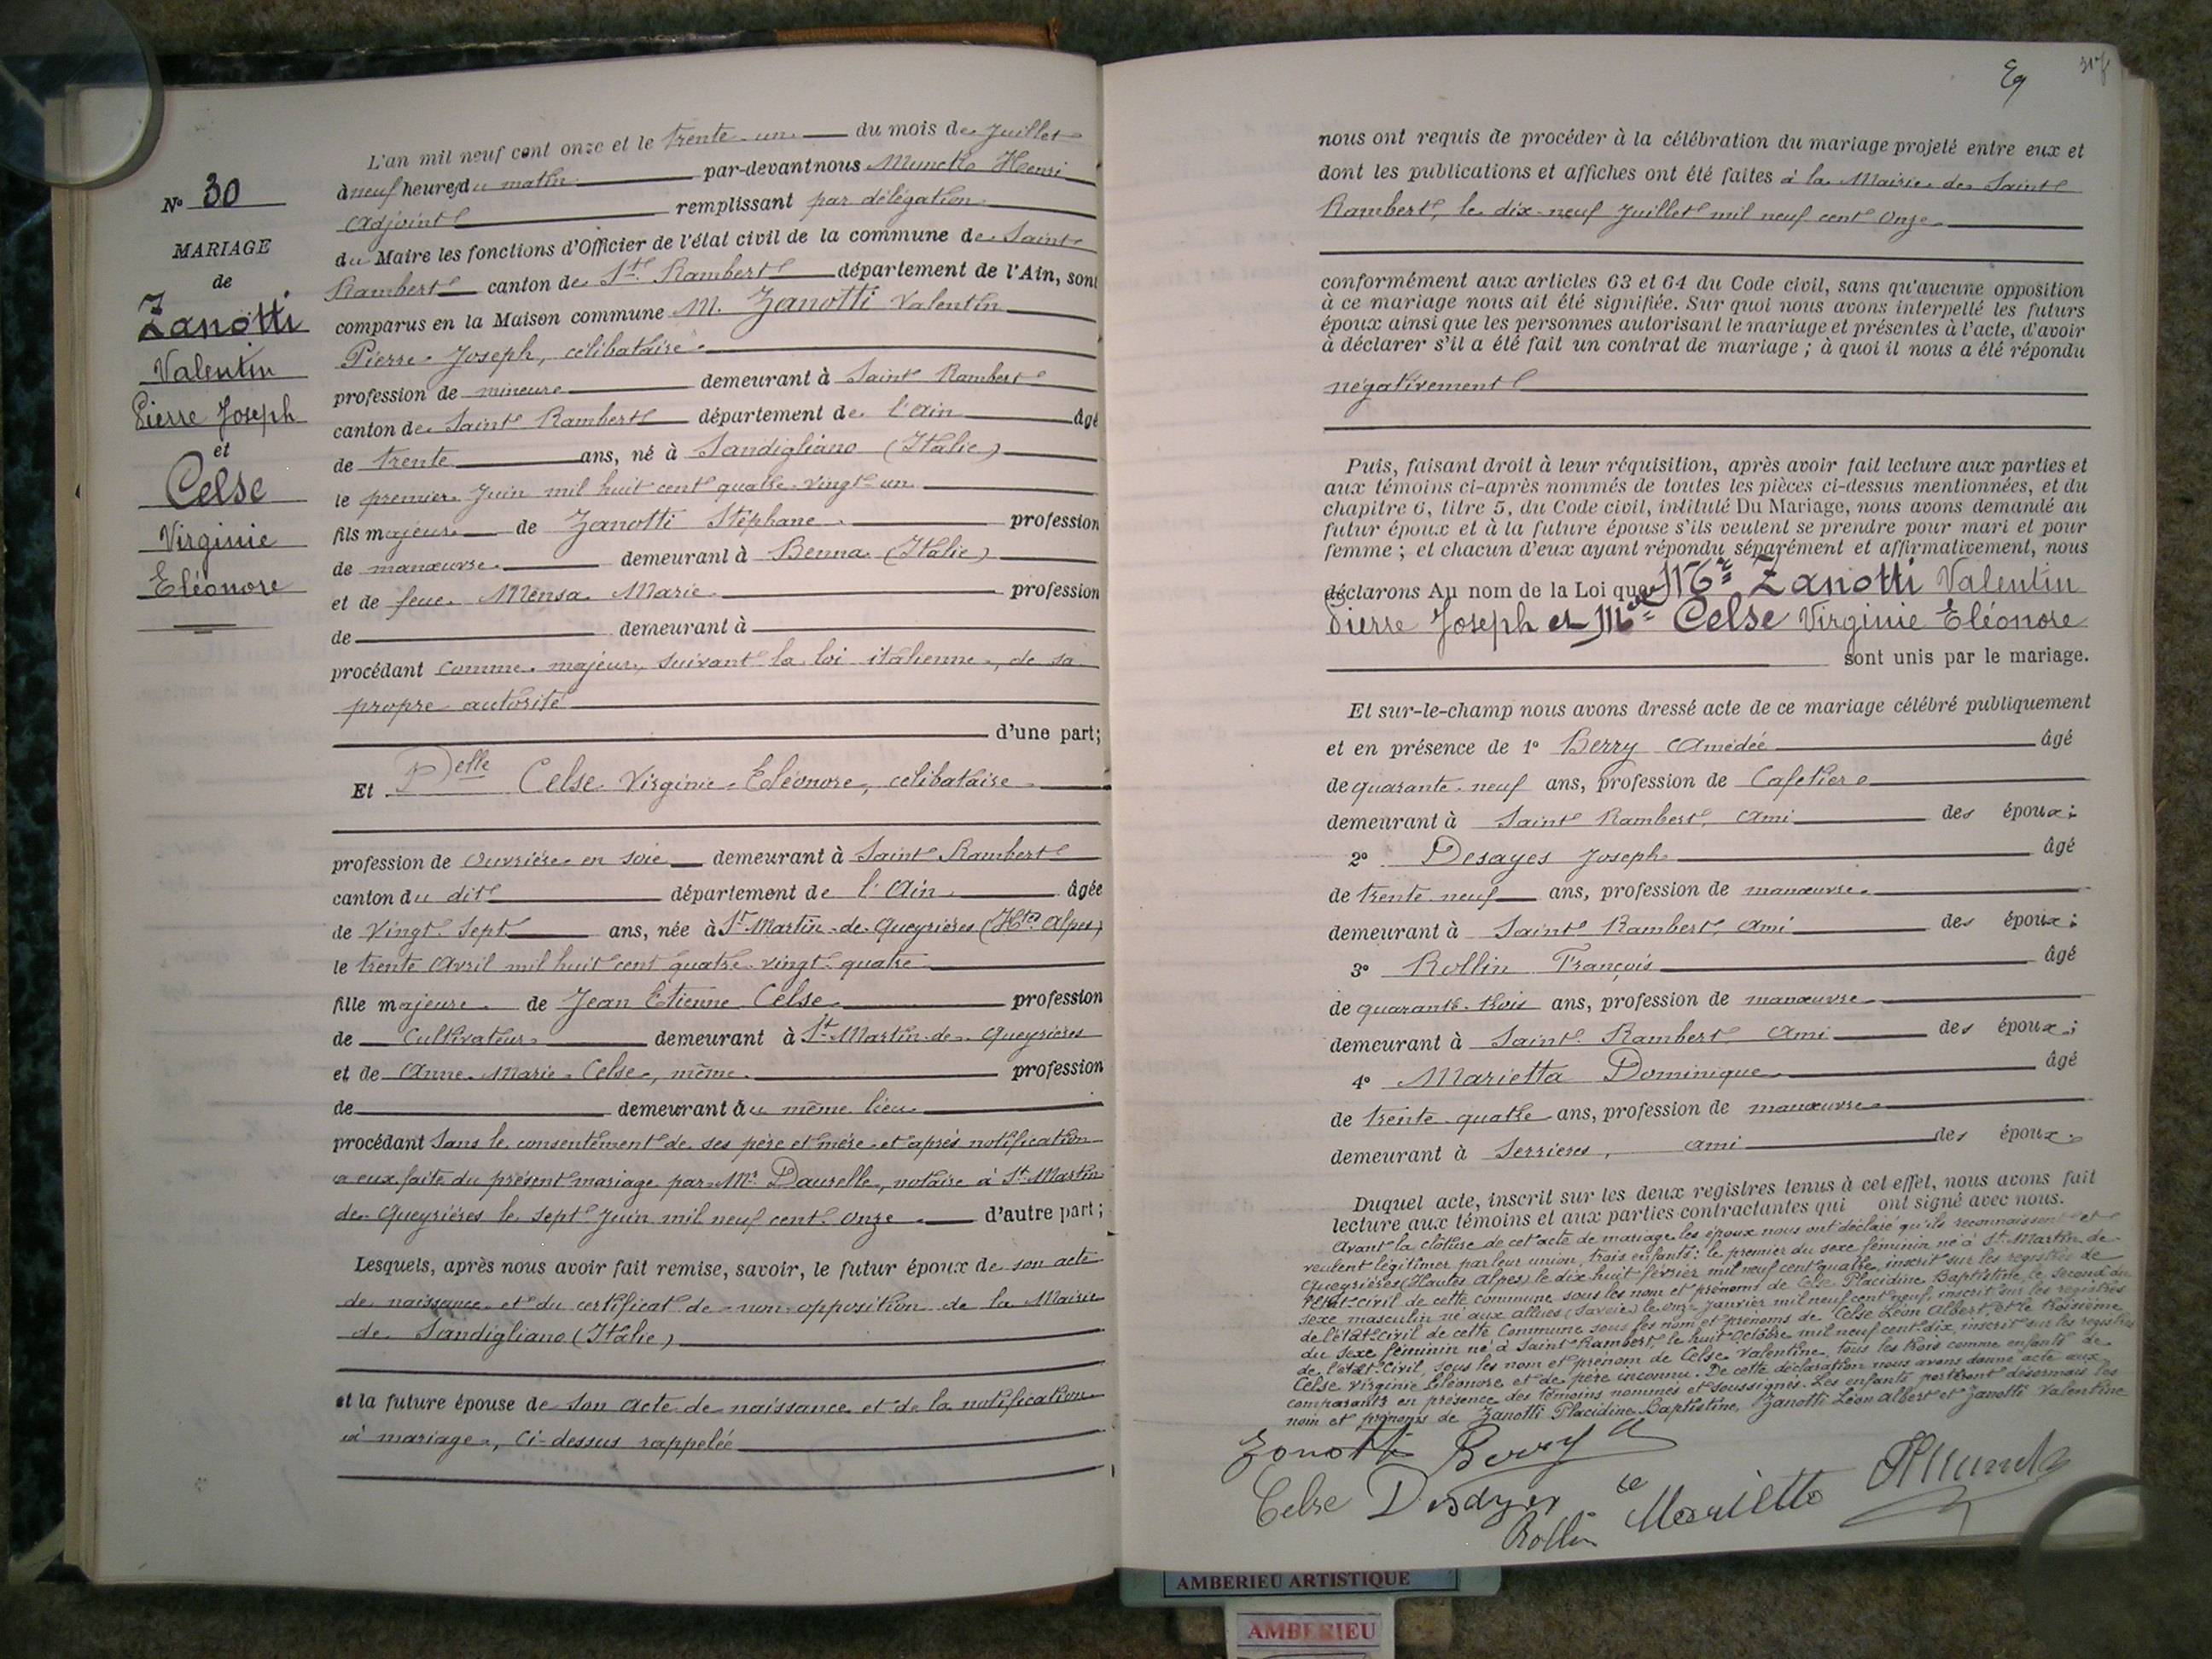 N° 30
MARIAGE
de
Zanotti
Valentin
Pierre Joseph
et
Celse
Virginie
Eléonore
L'an mil neuf cent onze et le trente-un du mois de Juillet
à neuf heures du matin par-devant nous Munck Henri
adjoint remplissant par délégation
du Maire les fonctions d'Officier de l'état civil de la commune de Saint
Rambert canton de St Rambert département de l'Ain, sont
comparus en la Maison commune M. Zanotti Valentin
Pierre Joseph, célibataire
profession de mineur demeurant à Saint Rambert
canton de Saint Rambert département de l'Ain âgé
de trente ans, né à Sandigliano (Italie)
le premier Juin mil huit cent quatre-vingt-un
fils majeur de Zanotti Stéphane profession
de manœuvre demeurant à Benna (Italie)
et de feue Mensa Marie profession
de demeurant à
procédant comme majeur, suivant la loi italienne, de sa
propre autorité
d'une part;
Et Delle Celse Virginie Eléonore, célibataire
profession de ouvrière en soie demeurant à Saint Rambert
canton du dit département de l'Ain âgée
de vingt-sept ans, née à St Martin-de-Queyrières (Htes Alpes)
le trente Avril mil huit cent quatre-vingt-quatre
fille majeure de Jean Etienne Celse profession
de Cultivateur demeurant à St Martin-de-Queyrières
et de Anne-Marie Celse, même profession
de demeurant au même lieu
procédant sans le consentement de ses père et mère et après notification
à eux faite du présent mariage par Mr Daurelle, notaire à St Martin
de Queyrières le sept Juin mil neuf cent onze d'autre part;
Lesquels, après nous avoir fait remise, savoir, le futur époux de son acte
de naissance et du certificat de non opposition de la Mairie
de Sandigliano (Italie)
et la future épouse de son acte de naissance et de la notification
à mariage, ci-dessus rappelée
nous ont requis de procéder à la célébration du mariage projeté entre eux et
dont les publications et affiches ont été faites à la Mairie de Saint
Rambert, le dix-neuf Juillet mil neuf cent onze
conformément aux articles 63 et 64 du Code civil, sans qu'aucune opposition
à ce mariage nous ait été signifiée. Sur quoi nous avons interpellé les futurs
époux ainsi que les personnes autorisant le mariage et présentes à l'acte, d'avoir
à déclarer s'il a été fait un contrat de mariage ; à quoi il nous a été répondu
négativement
Puis, faisant droit à leur réquisition, après avoir fait lecture aux parties et
aux témoins ci-après nommés de toutes les pièces ci-dessus mentionnées, et du
chapitre 6, titre 5, du Code civil, intitulé Du Mariage, nous avons demandé au
futur époux et à la future épouse s'ils veulent se prendre pour mari et pour
femme ; et chacun d'eux ayant répondu séparément et affirmativement, nous
déclarons Au nom de la Loi que Mr Zanotti Valentin
Pierre Joseph et Melle Celse Virginie Eléonore
sont unis par le mariage.
Et sur-le-champ nous avons dressé acte de ce mariage célébré publiquement
et en présence de 1° Berry Amédée âgé
de quarante-neuf ans, profession de Cafetier
demeurant à Saint Rambert, ami des époux;
2° Desayes Joseph âgé
de trente neuf ans, profession de manœuvre
demeurant à Saint Rambert, ami des époux;
3° Rollin François âgé
de quarante-trois ans, profession de manœuvre
demeurant à Saint Rambert ami des époux;
4° Marietta Dominique âgé
de trente-quatre ans, profession de manœuvre
demeurant à Serrieres, ami des époux.
Duquel acte, inscrit sur les deux registres tenus à cet effet, nous avons fait
lecture aux témoins et aux parties contractantes qui ont signé avec nous.
Avant la clôture de cet acte de mariage les époux nous ont déclaré qu'ils reconnaissent et
veulent légitimer par leur union, trois enfants: le premier du sexe féminin né à St Martin de
Queyrières (Hautes Alpes) le dix huit février mil neuf cent quatre, inscrit sur les registres de
l'état-civil de cette commune sous les nom et prénoms de Celse Placidine Baptistine, le second du
sexe masculin né aux Allues (Savoie) le onze Janvier mil neuf cent neuf, inscrit sur les registres
de l'état-civil de cette Commune sous les nom et prénoms de Celse Léon Albert, et le troisième
du sexe féminin né à Saint Rambert, le huit Octobre mil neuf cent-dix, inscrit sur les registres
de l'état-civil, sous les nom et prénom de Celse Valentine, tous les trois comme enfants de
Celse Virginie Eléonore et de père inconnu. De cette déclaration nous avons donné acte aux
comparants en présence des témoins nommés et soussignés. Les enfants porteront désormais les
nom et prénoms de Zanotti Placidine Baptistine, Zanotti Léon Albert et Zanotti Valentine
Zanotti Berry A
Celse Desayes Marietta Munck
Rollin
AMBERIEU ARTISTIQUE
AMBERIEU